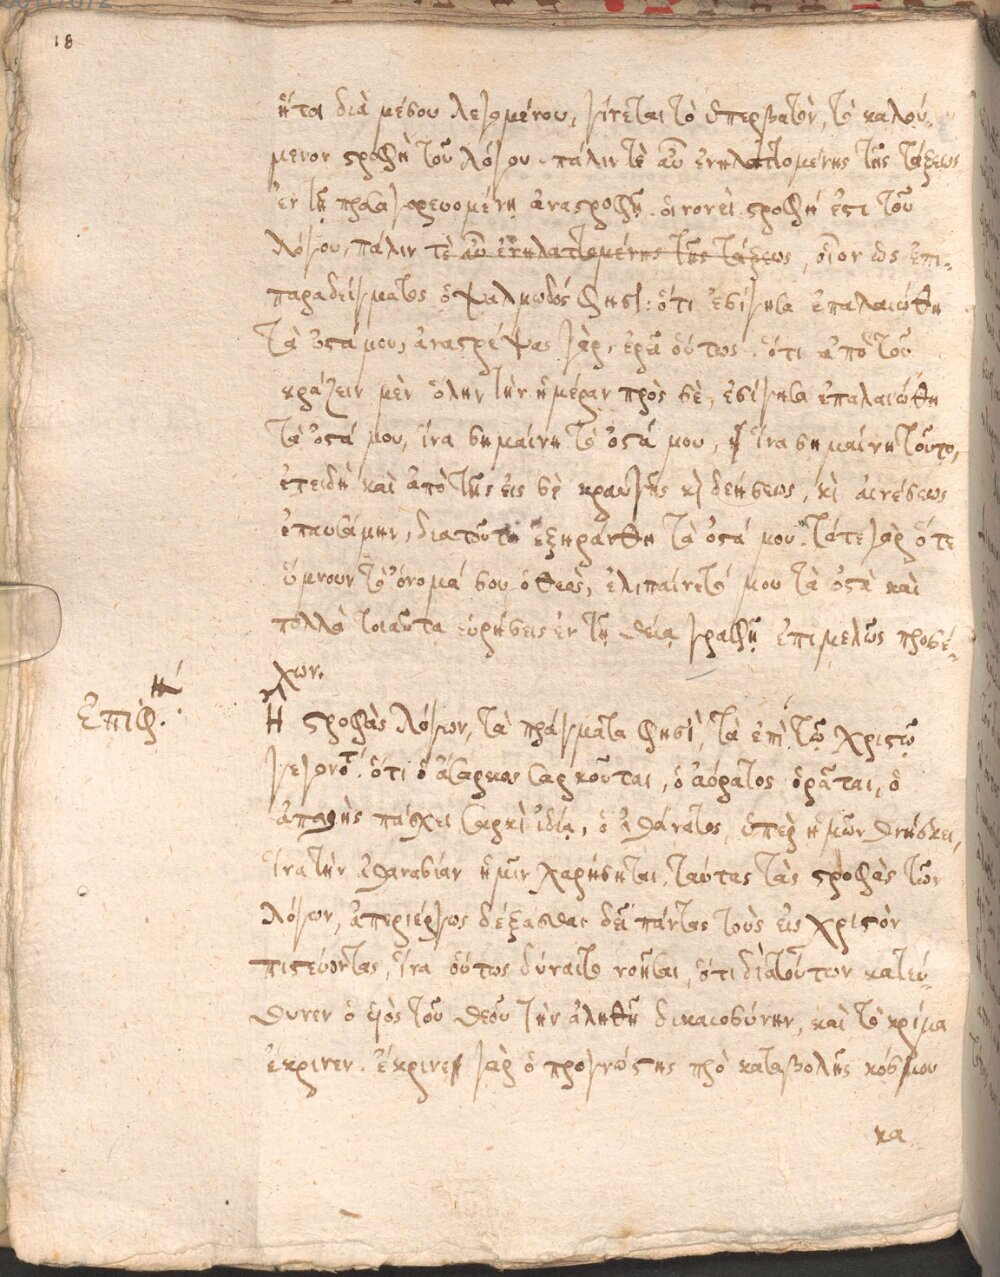 18
ἤτοι διὰ μέσου λεγομένου, γίνεται τὸ ὑπερβατὸν, τὸ καλού-
μενον στροφὴ τοῦ λόγου. πάλιν τὲ αὖ ἐνηλατ῾τομένης τῆς τάξεως
ἐν τῇ προσαγορευομένῃ ἀναστροφῇ. οἱονεὶ στροφή ἐστι τοῦ
λόγου, πάλιν τὲ αὖ ἐνηλαττομένης τῆς τάξεως, οἷον ὡς ἐπι-
παραδείγματος ὁ ψαλμωδός φησί: ὅτι ἐσίγησα ἐπαλαιώθη
τὰ ὀστά μου, ἀναστρέψας γὰρ, ἐρεῖ οὕτως. ὅτι ἀπὸ τοῦ
κράζειν μὲν ὅλην τὴν ἡμέραν πρὸς σὲ, ἐσίγησα ἐπαλαιώθη
τὰ ὀστά μου, ἵνα σημαίνῃ τὸ ὀστά μου, ἵνα σημαίνη τοῦτο,
ἐπειδὴ καὶ ἀπὸ τῆς εἰς σὲ κραυγῆς κὶ δεήσεως, κὶ αἰνέσεως
ἐπαυσάμην, διατοῦτο ἐξηράνθη τὰ ὀστά μου. τότε γὰρ ὅτε
ὕμνουν τὸ ὄνομά σου ὁ θεὸς, ἐλιπαίνετό μου τὰ ὀστὰ καὶ
πολλὰ τοιαῦτα εὑρήσεις ἐν τῇ θείᾳ γραφῇ ἐπιμελῶς προσέ-
χων.
Ἐπιφ.
Ἢ στροφὰς λόγων, τὰ πράγματα φησὶ, τὰ ἐπὶ τῷ χριστῷ
γεγονότ. ὅτι ὁ ἄσαρκος σαρκοῦται, ὁ ἀόρατος ὁρᾶται, ὁ
ἀπαθὴς πάσχει σαρκὶ ἰδίᾳ, ὁ ἀθάνατος, ὑπὲρ ἡμῶν θνήσκει,
ἵνα τὴν ἀθανασίαν ἡμῖν χαρήσηται. ταύτας τὰς στροφὰς τῶν
λόγων, ἀπεριέργως δέξασθαι δεῖ πάντας τοὺς εἰς χριστὸν
πιστεύοντας, ἵνα οὕτως δύναιτο νοῆσαι, ὅτι διὰ τούτων κατεύ-
θυνεν ὁ υἱὸς τοῦ θεοῦ τὴν ἀληθῆ δικαιοσύνην, καὶ τὸ κρίμα
ἔκρινεν. ἔκρινε γὰρ ὁ προγνώστης πρὸ καταβολῆς κόσμου
κα